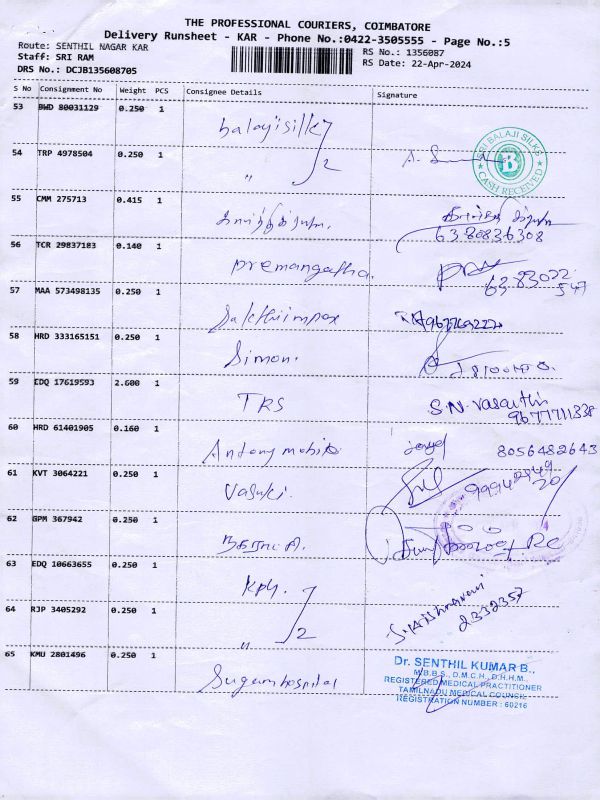 THE PROFESSIONAL COURIERS, COIMBATORE
Delivery Runsheet - KAR - Phone No.:0422-3505555 - Page No.:5
Route: SENTHIL NAGAR KAR
RS No.: 1356087
Staff: SRI RAM
RS Date: 22-Apr-2024
DRS No.: DCJB135608705
S No Consignment No Weight PCS Consignee Details Signature
53 BWD 80031129 0.250 1 balajisilks
54 TRP 4978504 0.250 1 〃 2
SRI BALAJI SILKS
B
CASH RECEIVED
55 CMM 275713 0.415 1
6380836308
56 TCR 29837183 0.140 1 premangatha. 6383022547
57 MAA 573498135 0.250 1 Sakthiimpex
58 HRD 333165151 0.250 1 Simon.
59 EDQ 17619593 2.600 1 TRS S.N. Vasanthi
9677711338
60 HRD 61401905 0.160 1 Antony 8056482643
61 KVT 3064221 0.250 1 Vasuki.
62 GPM 367942 0.250 1
63 EDQ 10663655 0.250 1 KPY.
64 RJP 3405292 0.250 1 〃 2 2332357
65 KMU 2801496 0.250 1 Sugamhospital
Dr. SENTHIL KUMAR B.,
M.B.B.S., D.M.C.H., D.H.H.M.,
REGISTERED MEDICAL PRACTITIONER
TAMILNADU MEDICAL COUNCIL
REGISTRATION NUMBER : 60216